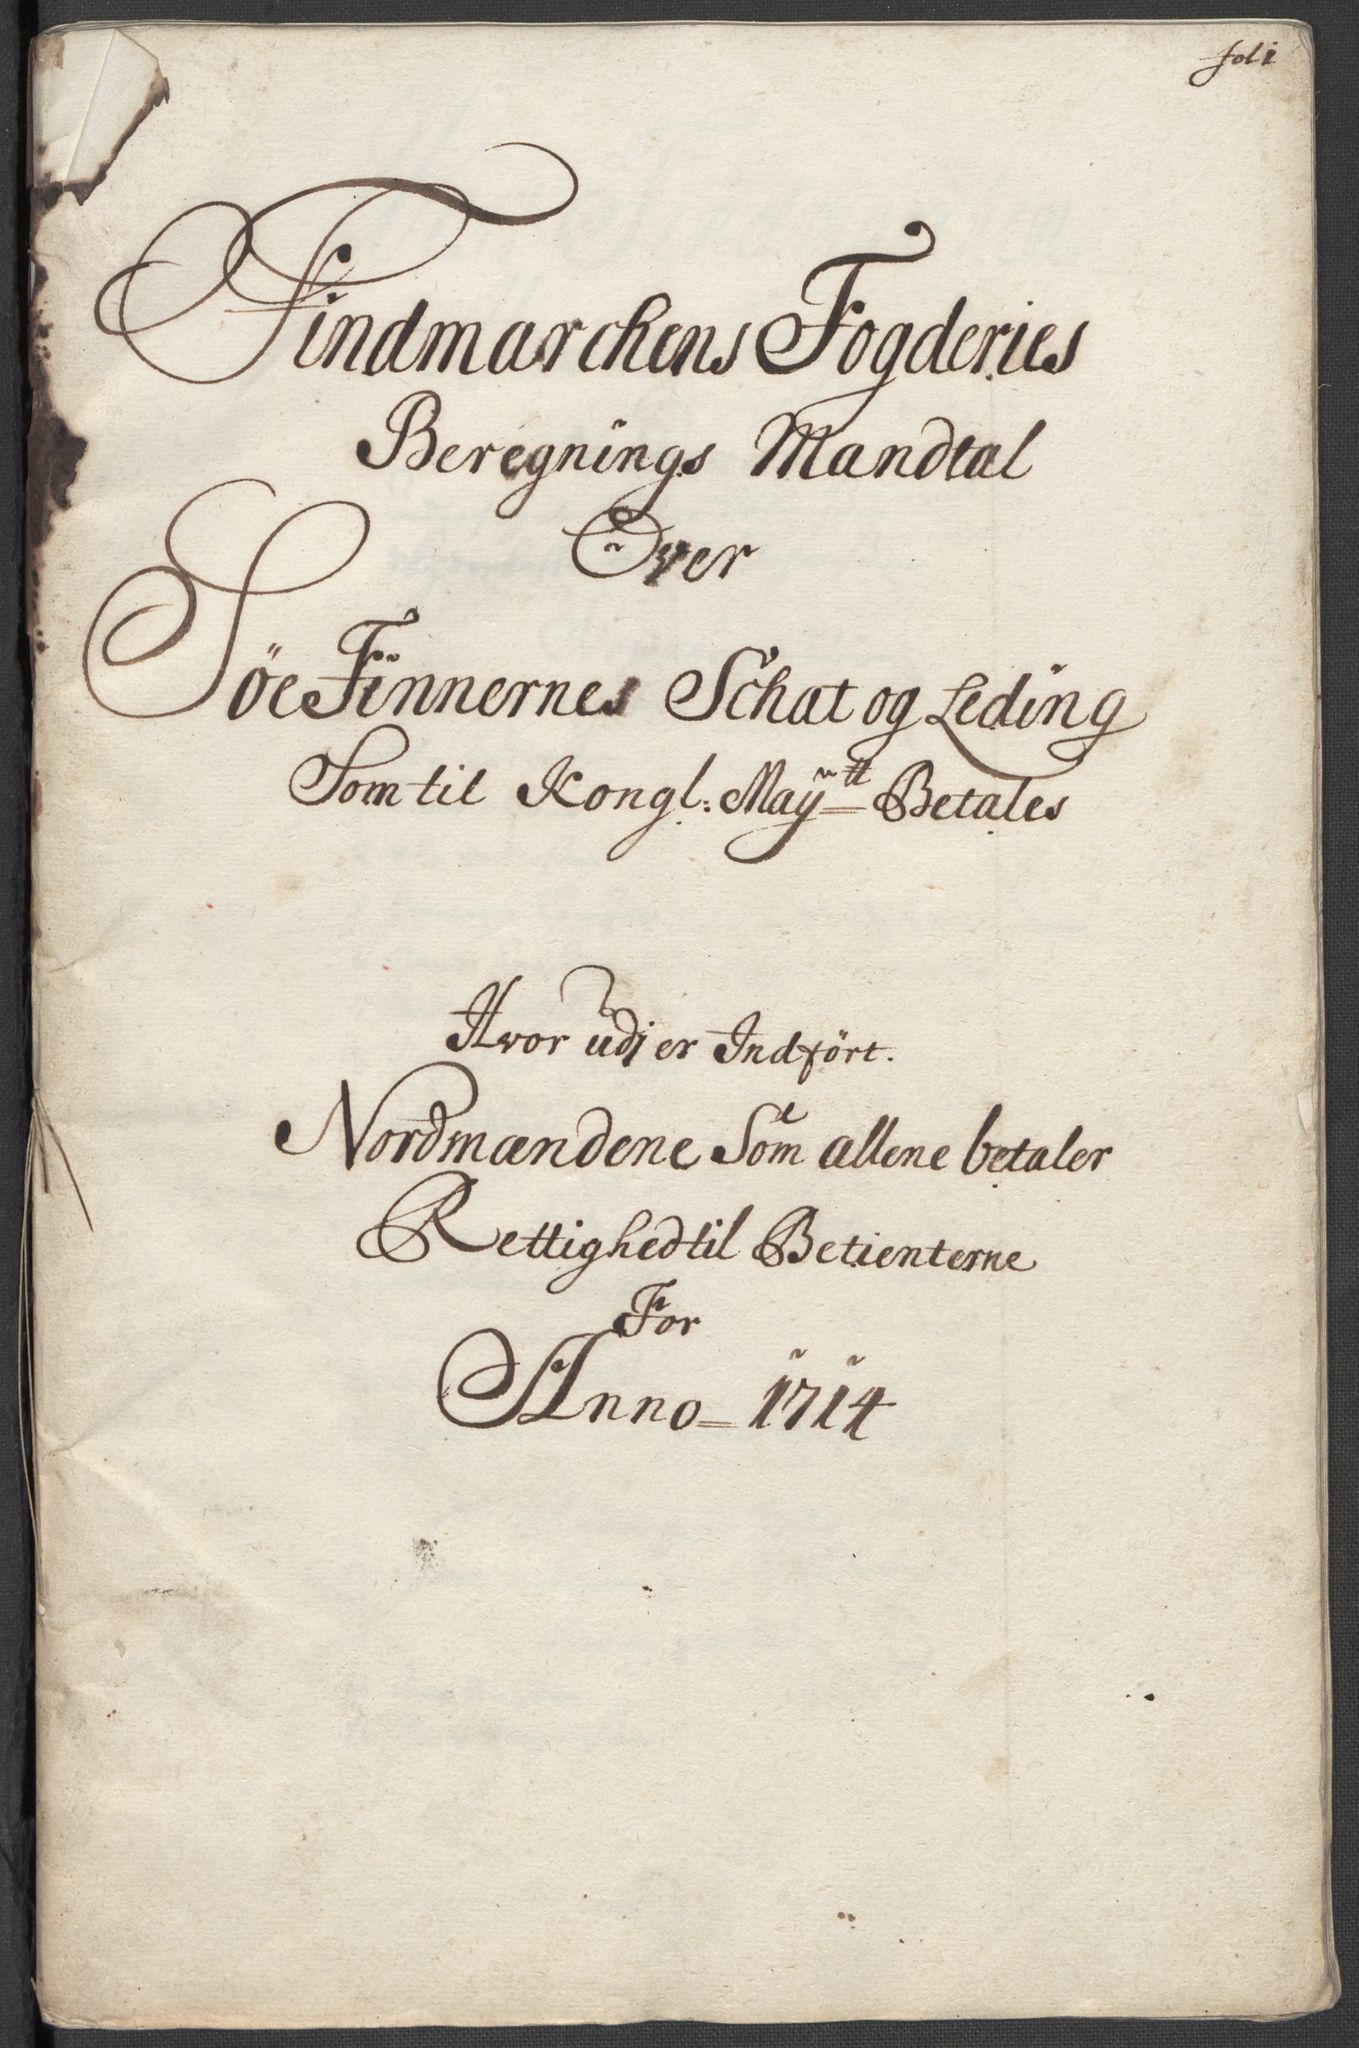 fol 1
Findmarchens Fogderies
Beregnings Mandtal
Over
Söe Finnernes Schat og Leding
Som til Kongl: Mayᵗᵗ Betales
Hvor udj er Indfört.
Nordmændene Som allene betaler
Rettighed til Betienterne
For
Anno 1714